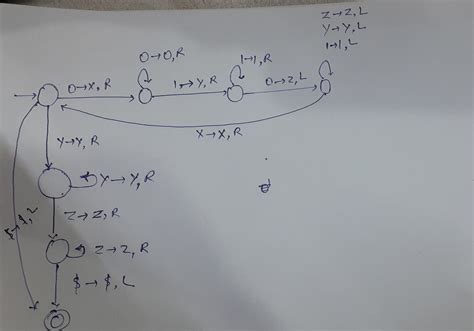 Z→Z, L
Y→Y, L
1→1, L
0→0, R
1→1, R
0→X, R
1→Y, R
0→Z, L
X→X, R
Y→Y, R
Y→Y, R
Z→Z, R
Z→Z, R
$→$, L
$→$, L